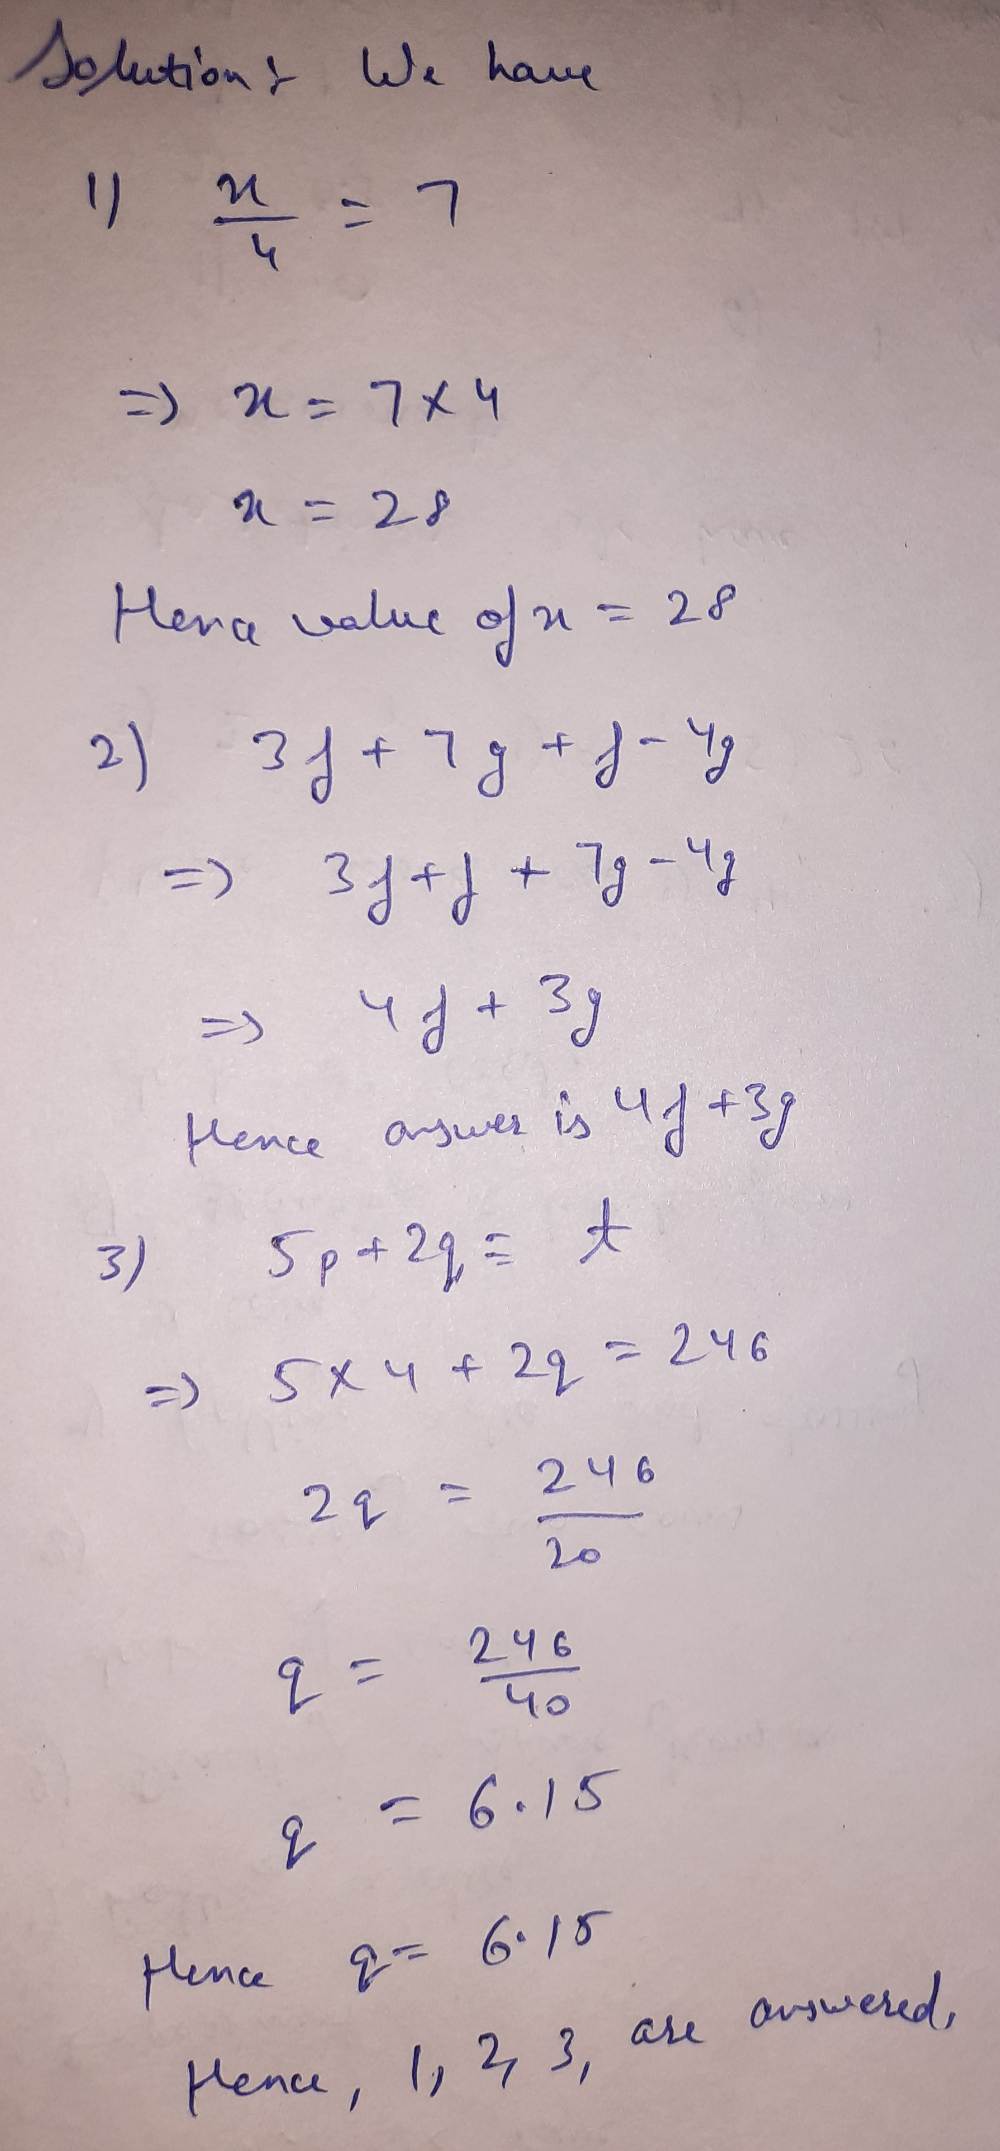 Solution:- We have
1) x/4 = 7
=> x = 7 × 4
x = 28
Hence value of x = 28
2) 3f + 7g + f - 4g
=> 3f + f + 7g - 4g
=> 4f + 3g
Hence answer is 4f + 3g
3) 5p + 2q = t
=> 5 × 4 + 2q = 246
2q = 246/20
q = 246/40
q = 6.15
Hence q = 6.15
Hence, 1, 2, 3, are answered.